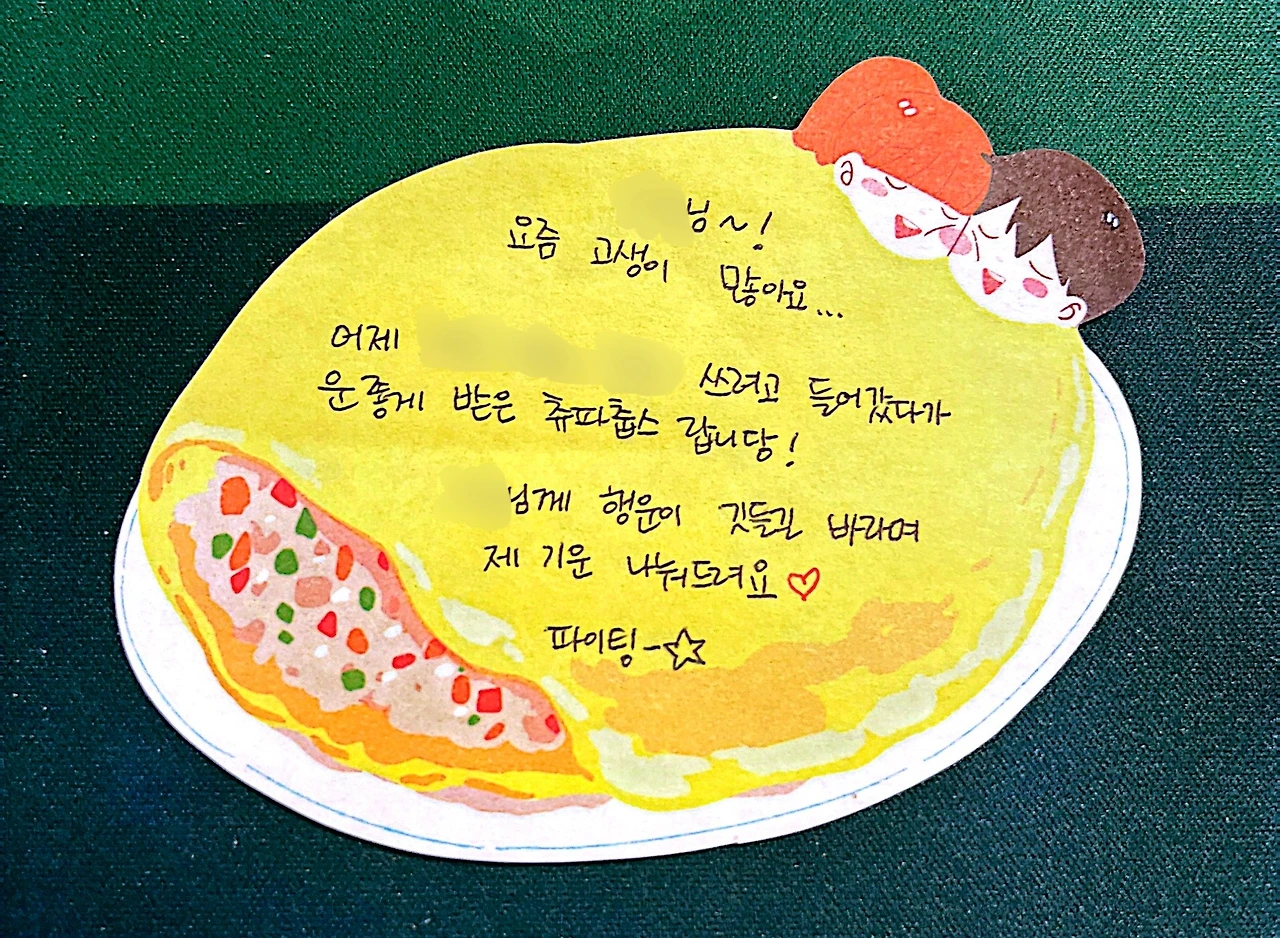 님~!
요즘 고생이 많아요...
어제 쓰려고 들어갔다가
운좋게 받은 츄파춥스 랍니당!
님께 행운이 깃들길 바라며
제 기운 나눠드려요♡
파이팅-☆